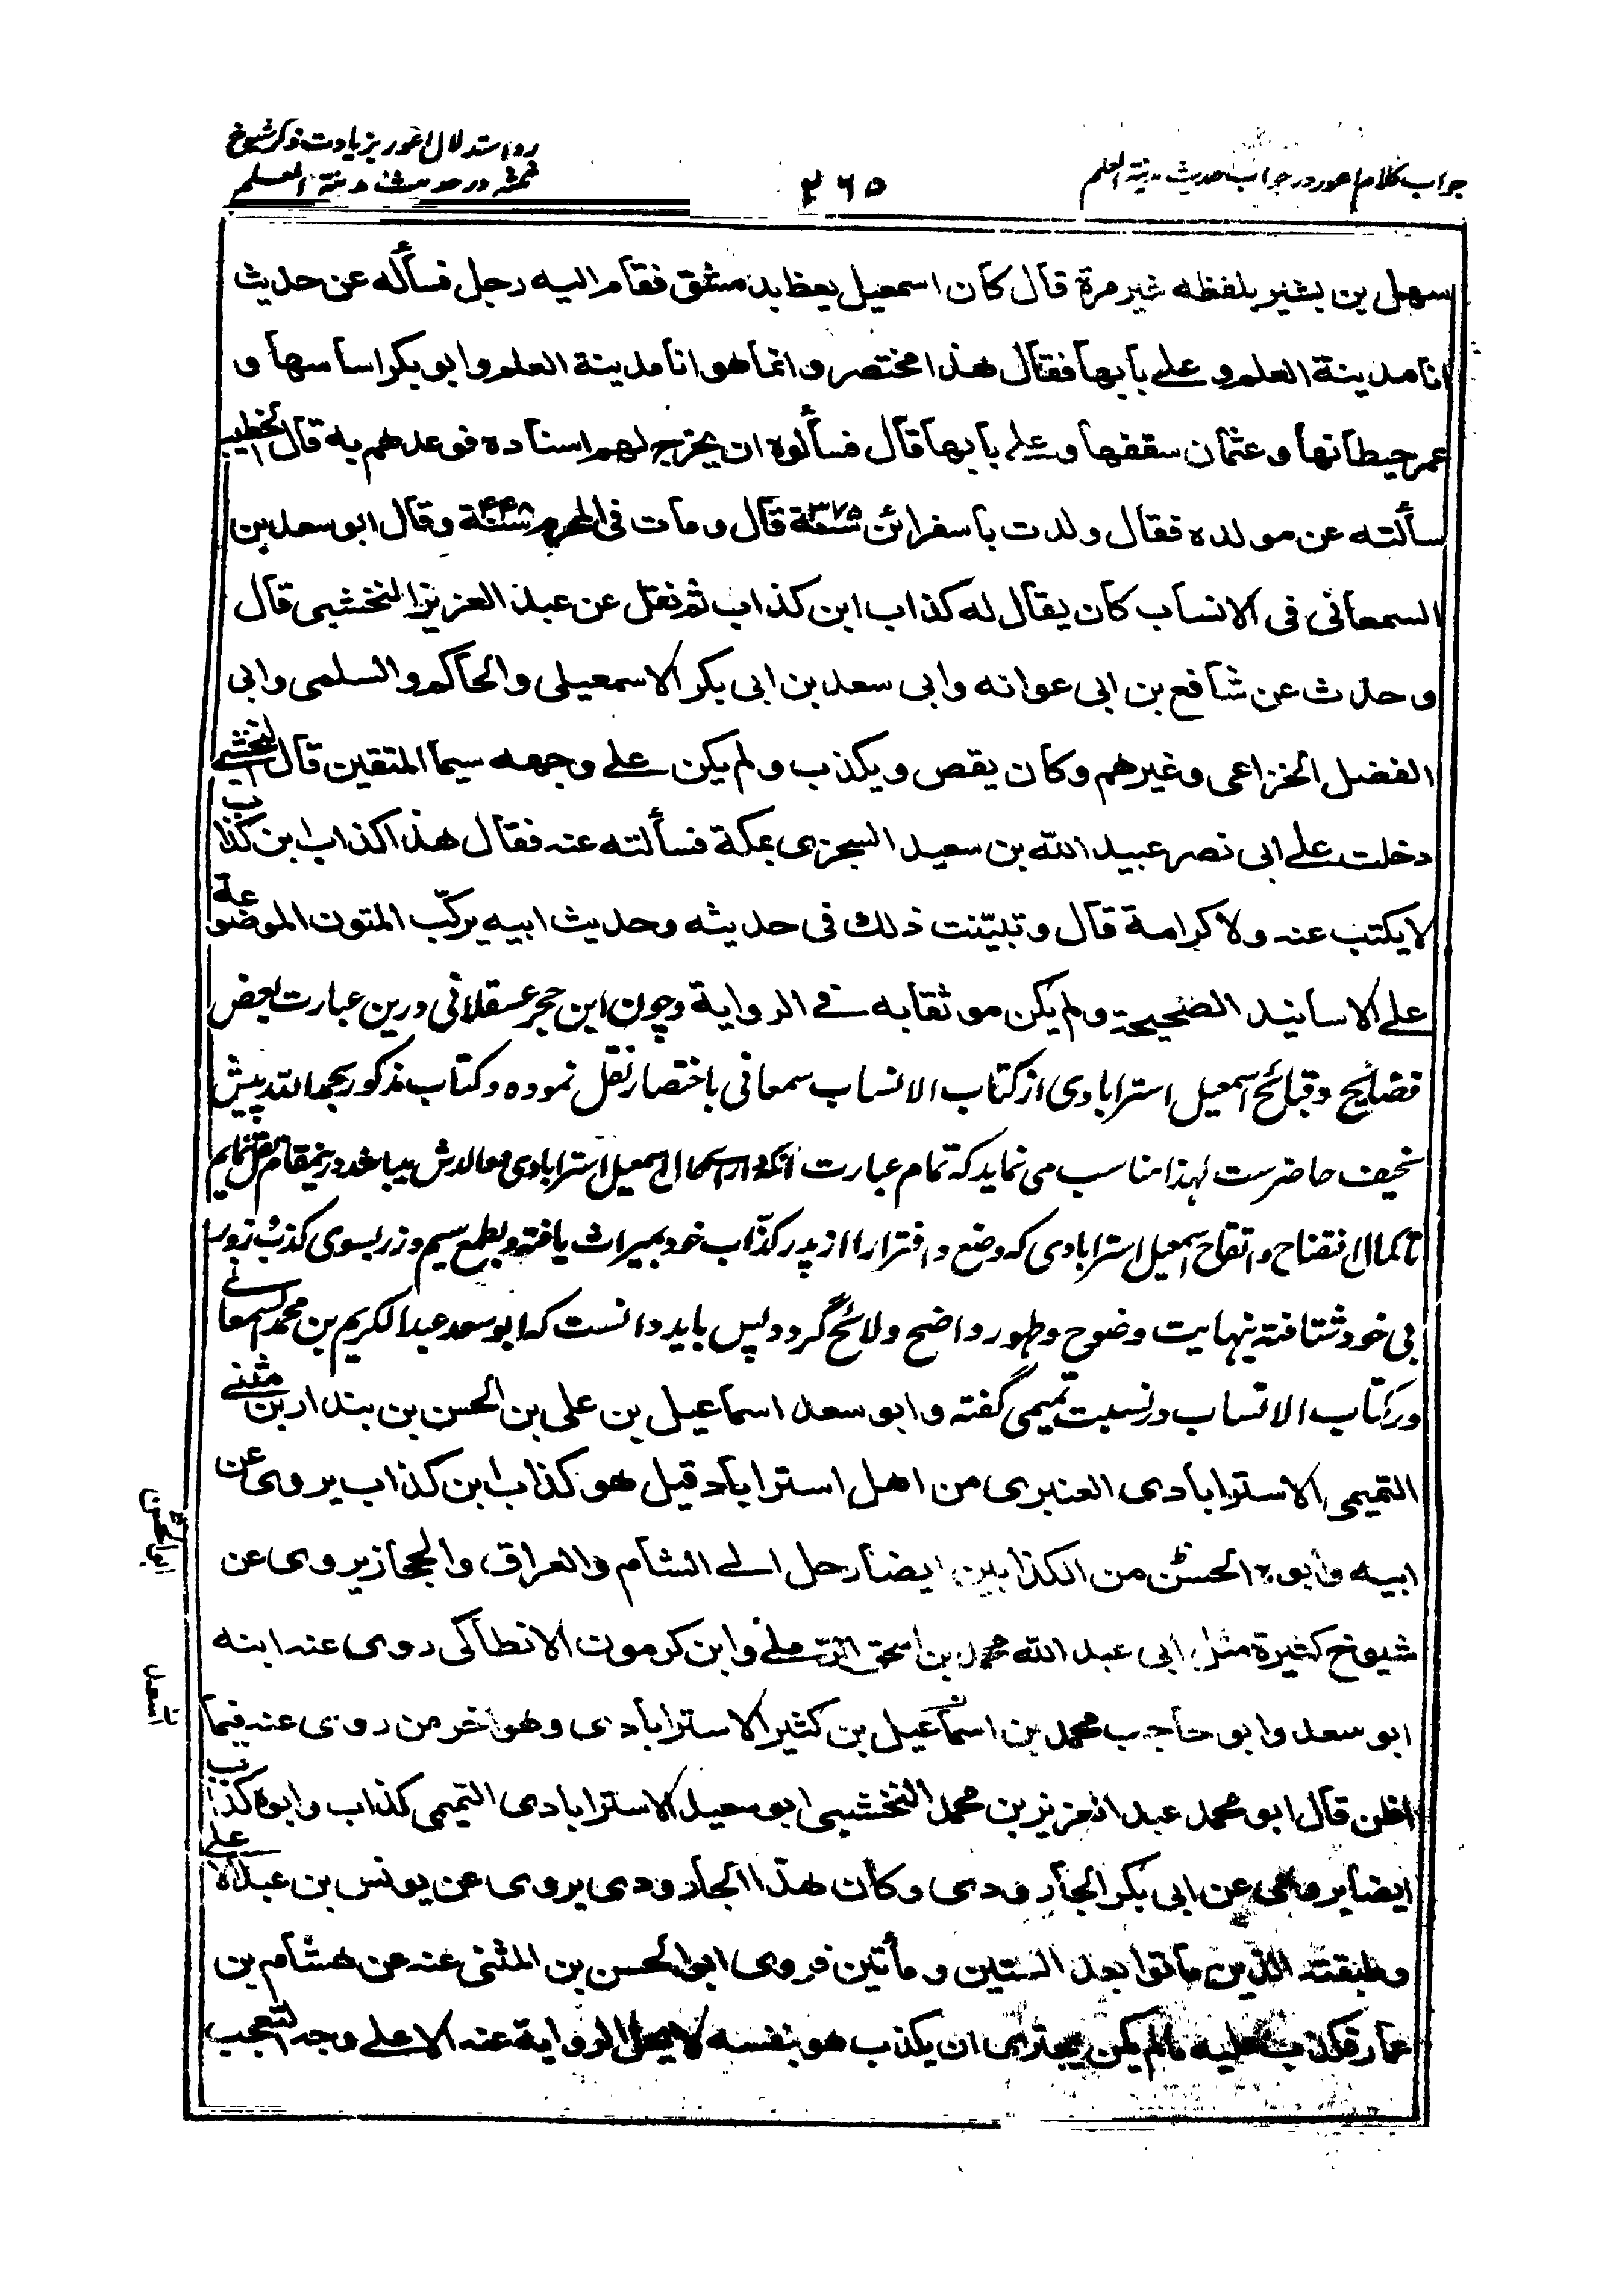 جواب کلام اعور در جواب حدیث مدینة العلم
۲۶۵
رد استدلال اعور بزیادت ذکر شیوخ
ثلثه در حدیث مدینة العلم
سهل بن بشیر بلفظه غیر مرة قال کان اسمعیل یعظ بدمشق فقام الیه رجل فسأله عن حدیث
انا مدینة العلم و علی بابها فقال هذا مختصر و انما هو انا مدینة العلم و ابو بکر اساسها و
عمر حیطانها و عثمان سقفها و علی بابها قال فسألوه ان یخرج لهم اسناده فوعدهم به قال الخطیب
سألته عن مولده فقال ولدت باسفرائن سنة ۳۷۵ قال و مات فی المحرم سنة ۴۴۸ و قال ابو سعد بن
السمعانی فی الانساب کان یقال له کذاب ابن کذاب ثم نقل عن عبد العزیز النخشبی قال
و حدث عن شافع بن ابی عوانه و ابی سعد بن ابی بکر الاسمعیلی و الحاکم و السلمی و ابی
الفضل الخزاعی و غیرهم و کان یقص و یکذب و لم یکن علی وجهه سیما المتقین قال النخشبی
دخلت علی ابی نصر عبید الله بن سعید السجزی بمکة فسألته عنه فقال هذا کذاب ابن کذاب
لا یکتب عنه و لا کرامة قال و تبیّنت ذلك فی حدیثه و حدیث ابیه یرکّب المتون الموضوعة
علی الاسانید الصحیحة و لم یکن موثقا به فی الروایة و چون ابن حجر عسقلانی درین عبارت بعض
فضائح و قبائح اسمعیل استرابادی از کتاب الانساب سمعانی باختصار نقل نموده و کتاب مذکور بحمد الله پیش
نحیف حاضرست لهذا مناسب می نماید که تمام عبارت اسمعیل استرابادی درینمقام نقل نمایم
تا کمال افتضاح و اتقاح اسمعیل استرابادی که وضع و افترا را از پدر کذّاب خود بمیراث یافته و بطمع سیم و زر بسوی کذب و زور
بی خود شتافته بنهایت وضوح و ظهور واضح و لائح گردد پس باید دانست که ابو سعد عبد الکریم بن محمد السمعانی
در کتاب الانساب در نسبت تمیمی گفته و ابو سعد اسماعیل بن علی بن الحسن بن بندار بن مثنی
التمیمی الاسترابادی العنبری من اهل استراباد قیل هو کذاب ابن کذاب یروی عن
ابیه و ابوه الحسن من الکذابین ایضا رحل الی الشام و العراق و الحجاز یروی عن
ابو الحسن
شیوخ کثیرة مثل ابی عبد الله محمد بن اسحق الرملی و ابن کرمون الانطاکی روی عنه ابنه
ابو سعد و ابو حاجب محمد بن اسماعیل بن کثیر الاسترابادی و هو اخر من روی عنه فیما
اظن قال ابو محمد عبد العزیز بن محمد النخشبی ابو سعید الاسترابادی التمیمی کذاب و ابوه کذاب
ایضا یروی عن ابی بکر الجارودی و کان هذا الجارودی یروی عن یونس بن عبد الاعلی
و طبقته الذین ماتوا بعد الستین و مأتین فروی ابو الحسن بن المثنی عنه عن هشام بن
عمار فکذب علیه ما لم یکن یجتری ان یکذب هو بنفسه لا یحل الروایة عنه الا علی وجه التعجب